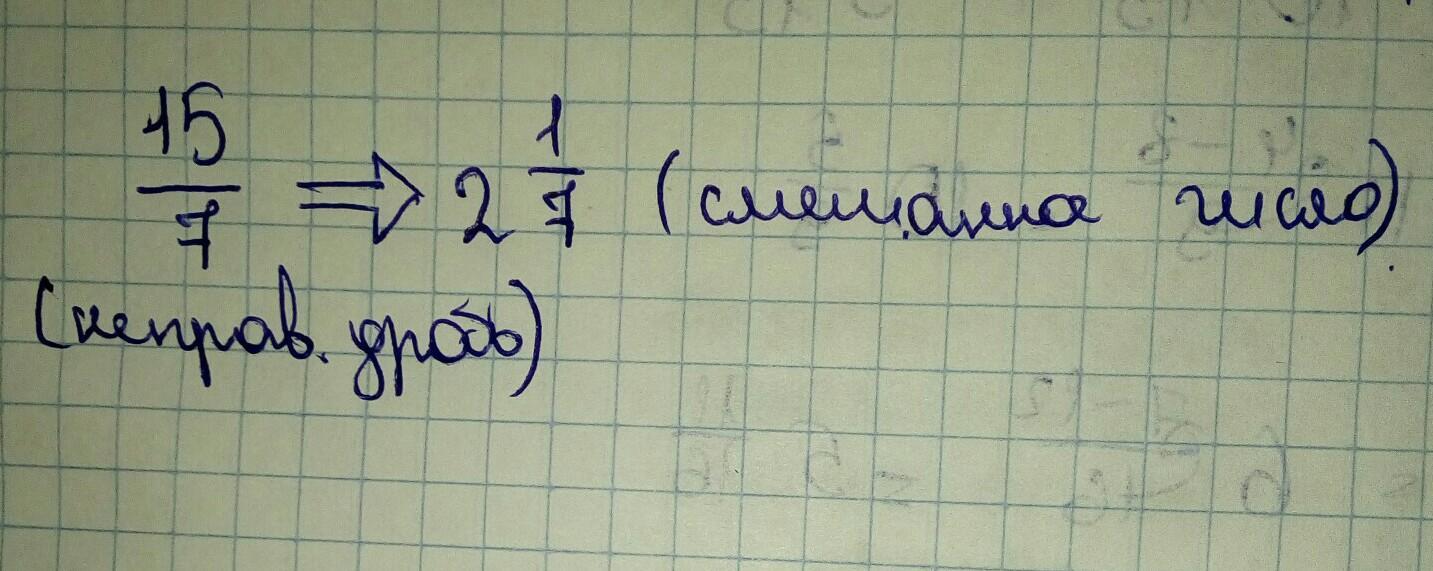 15/7 ⇒ 2 1/7 (смешанное число).
(неправ. дробь)